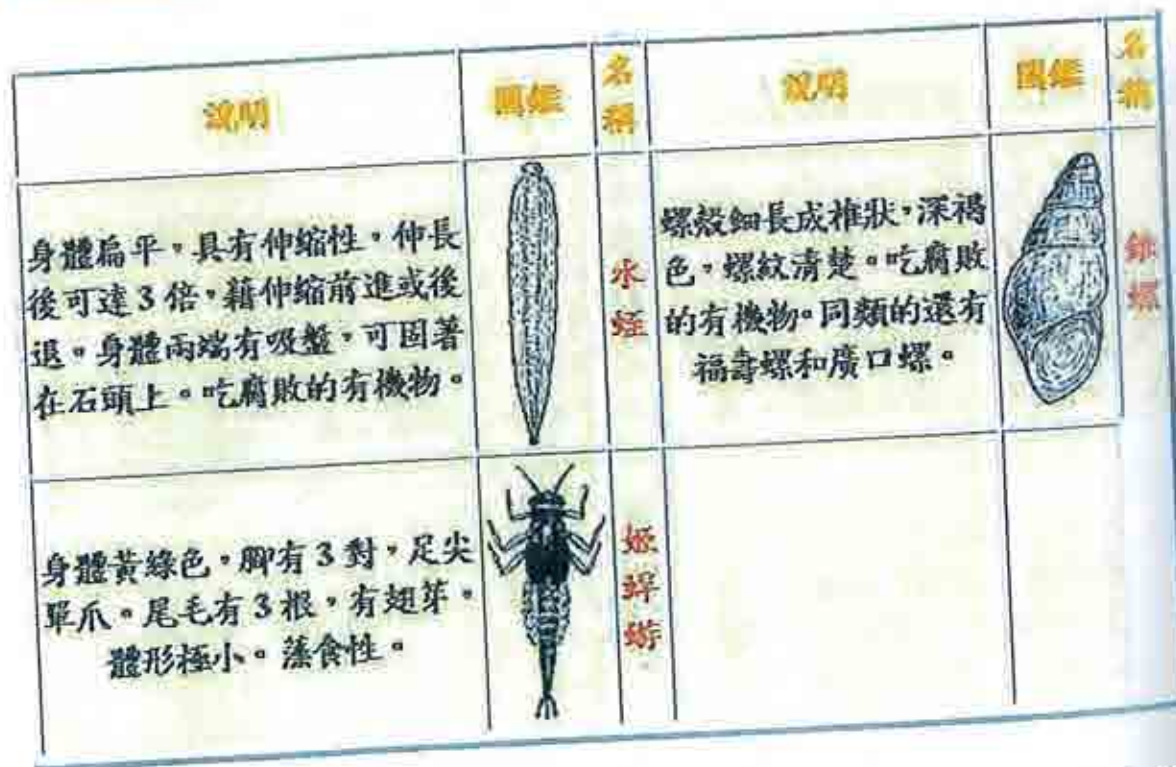 說明
圖鑑
名稱
說明
圖鑑
名稱
身體扁平，具有伸縮性，伸長
後可達3倍，藉伸縮前進或後
退。身體兩端有吸盤，可固著
在石頭上。吃腐敗的有機物。
水蛭
螺殼細長成椎狀，深褐
色，螺紋清楚。吃腐敗
的有機物。同類的還有
福壽螺和廣口螺。
錐螺
身體黃綠色，腳有3對，足尖
單爪。尾毛有3根，有翅芽。
體形極小。藻食性。
姬蜉蝣